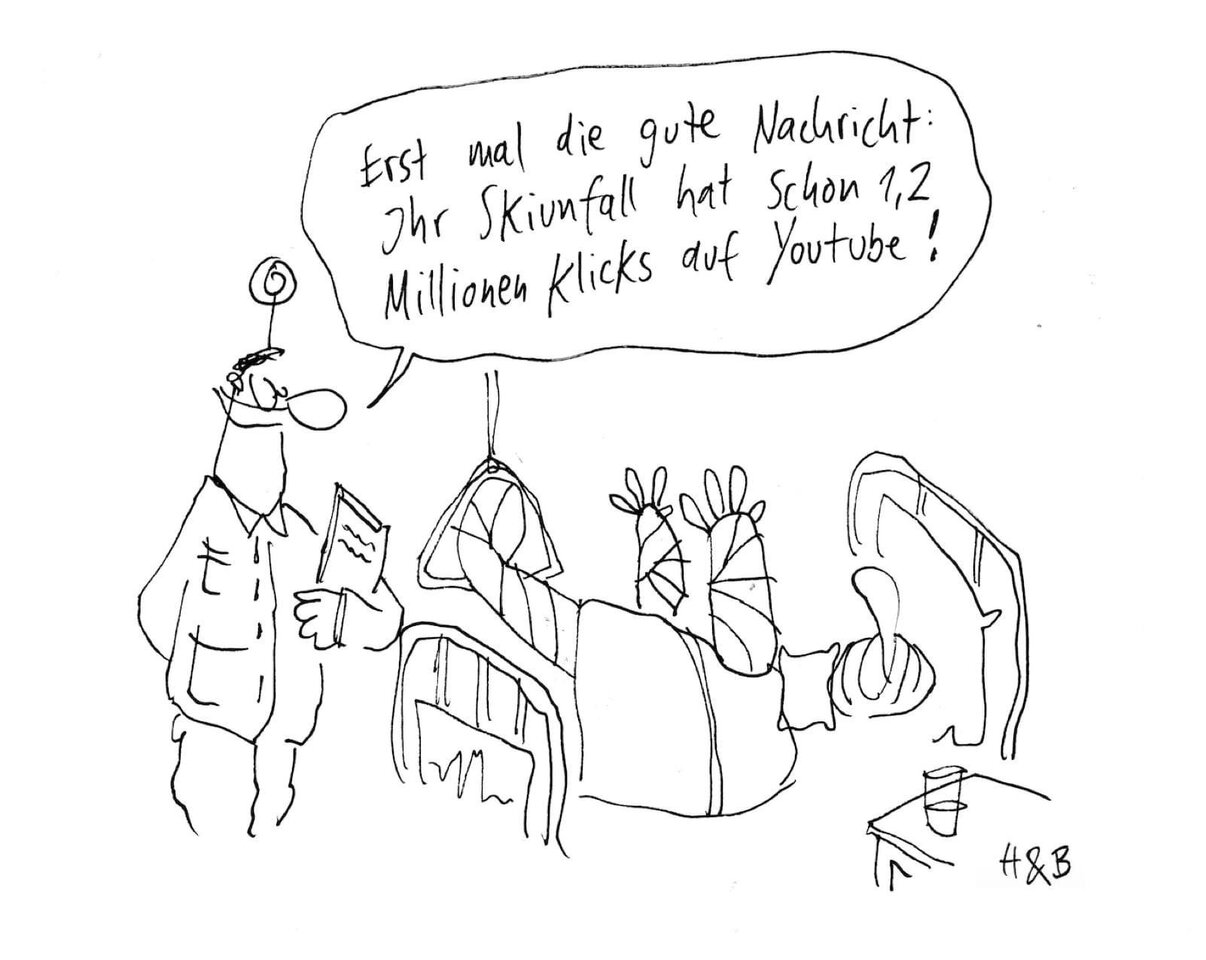 Erst mal die gute Nachricht:
Ihr Skiunfall hat schon 1,2
Millionen Klicks auf Youtube!
H&B